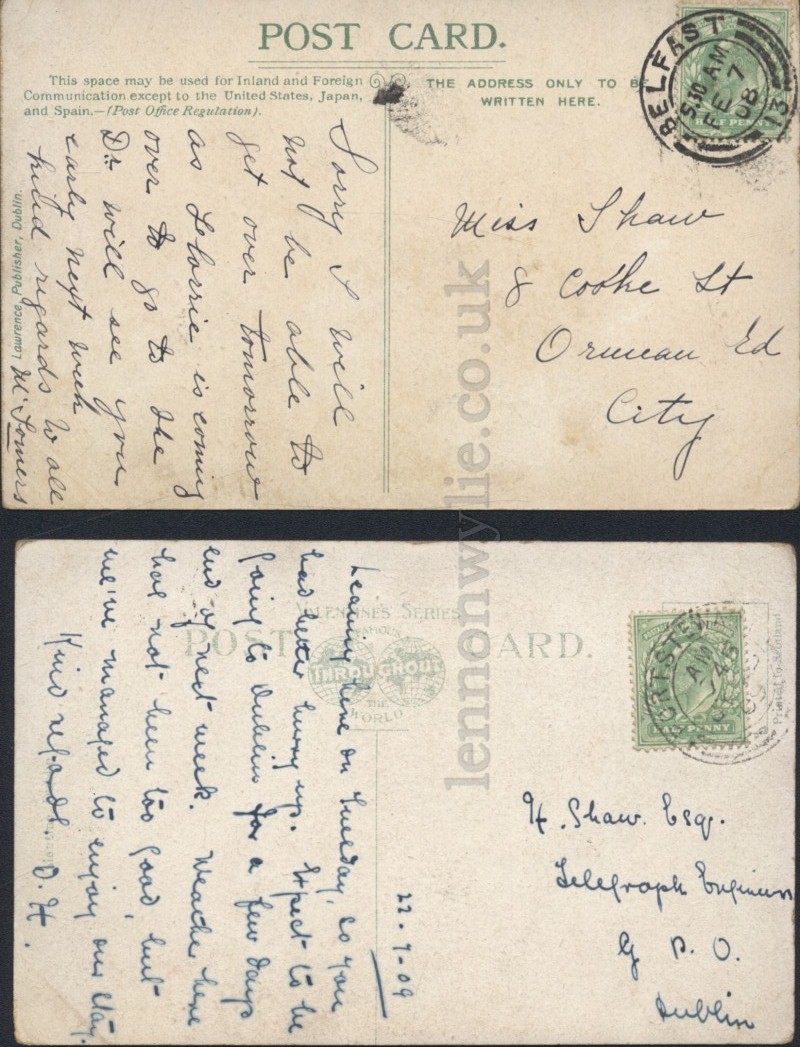 POST CARD.
This space may be used for Inland and Foreign
Communication except to the United States, Japan,
and Spain.—(Post Office Regulation).
THE ADDRESS ONLY TO BE
WRITTEN HERE.
BELFAST
5.10 AM
FE 7
08
13
HALF PENNY
Sorry I will
not be able to
get over tomorrow
as Florrie is coming
over to go to the
Dr. will see you
early next week
kind regards to all
M. Somers
Lawrence Publisher, Dublin.
Miss Shaw
8 Cooke St
Ormeau Rd
City
lennonwylie.co.uk
VALENTINE'S SERIES
FAMOUS
THROUGHOUT
THE
WORLD
POST CARD.
Printed in Scotland
PORTSTEWART
AM
45
HALF PENNY
Leaving here on Tuesday, so you
had better hurry up. Expect to be
going to Dublin for a few days
end of next week. Weather here
has not been too good, but
we've managed to enjoy our stay.
Kind regards. O. H.
22.9.09
H. Shaw. Esq.
Telegraph Engineer
G P. O.
Dublin